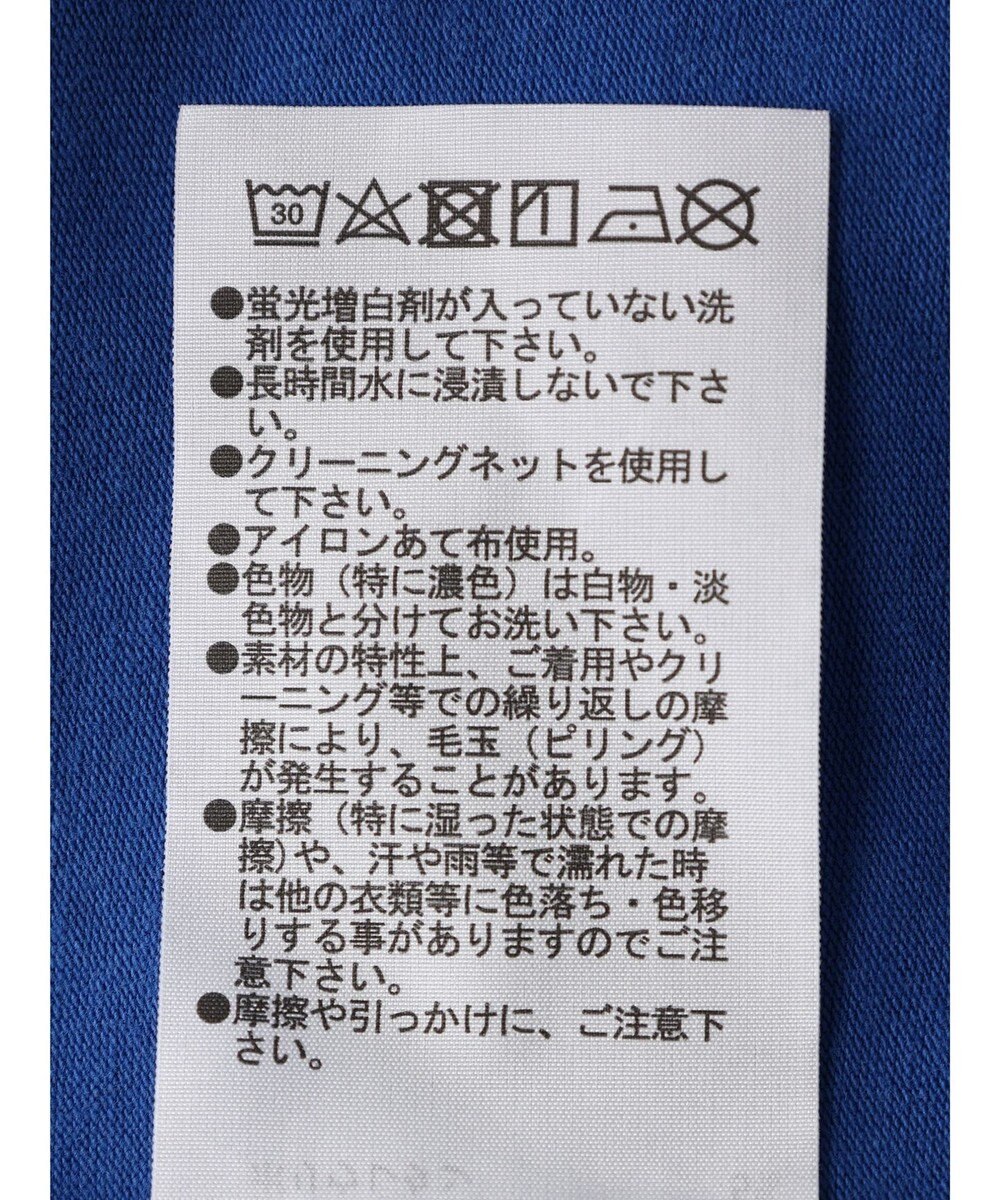 30
●蛍光増白剤が入っていない洗
剤を使用して下さい。
●長時間水に浸漬しないで下さ
い。
●クリーニングネットを使用し
て下さい。
●アイロンあて布使用。
●色物（特に濃色）は白物・淡
色物と分けてお洗い下さい。
●素材の特性上、ご着用やクリ
ーニング等での繰り返しの摩
擦により、毛玉（ピリング）
が発生することがあります。
●摩擦（特に湿った状態での摩
擦)や、汗や雨等で濡れた時
は他の衣類等に色落ち・色移
りする事がありますのでご注
意下さい。
●摩擦や引っかけに、ご注意下
さい。